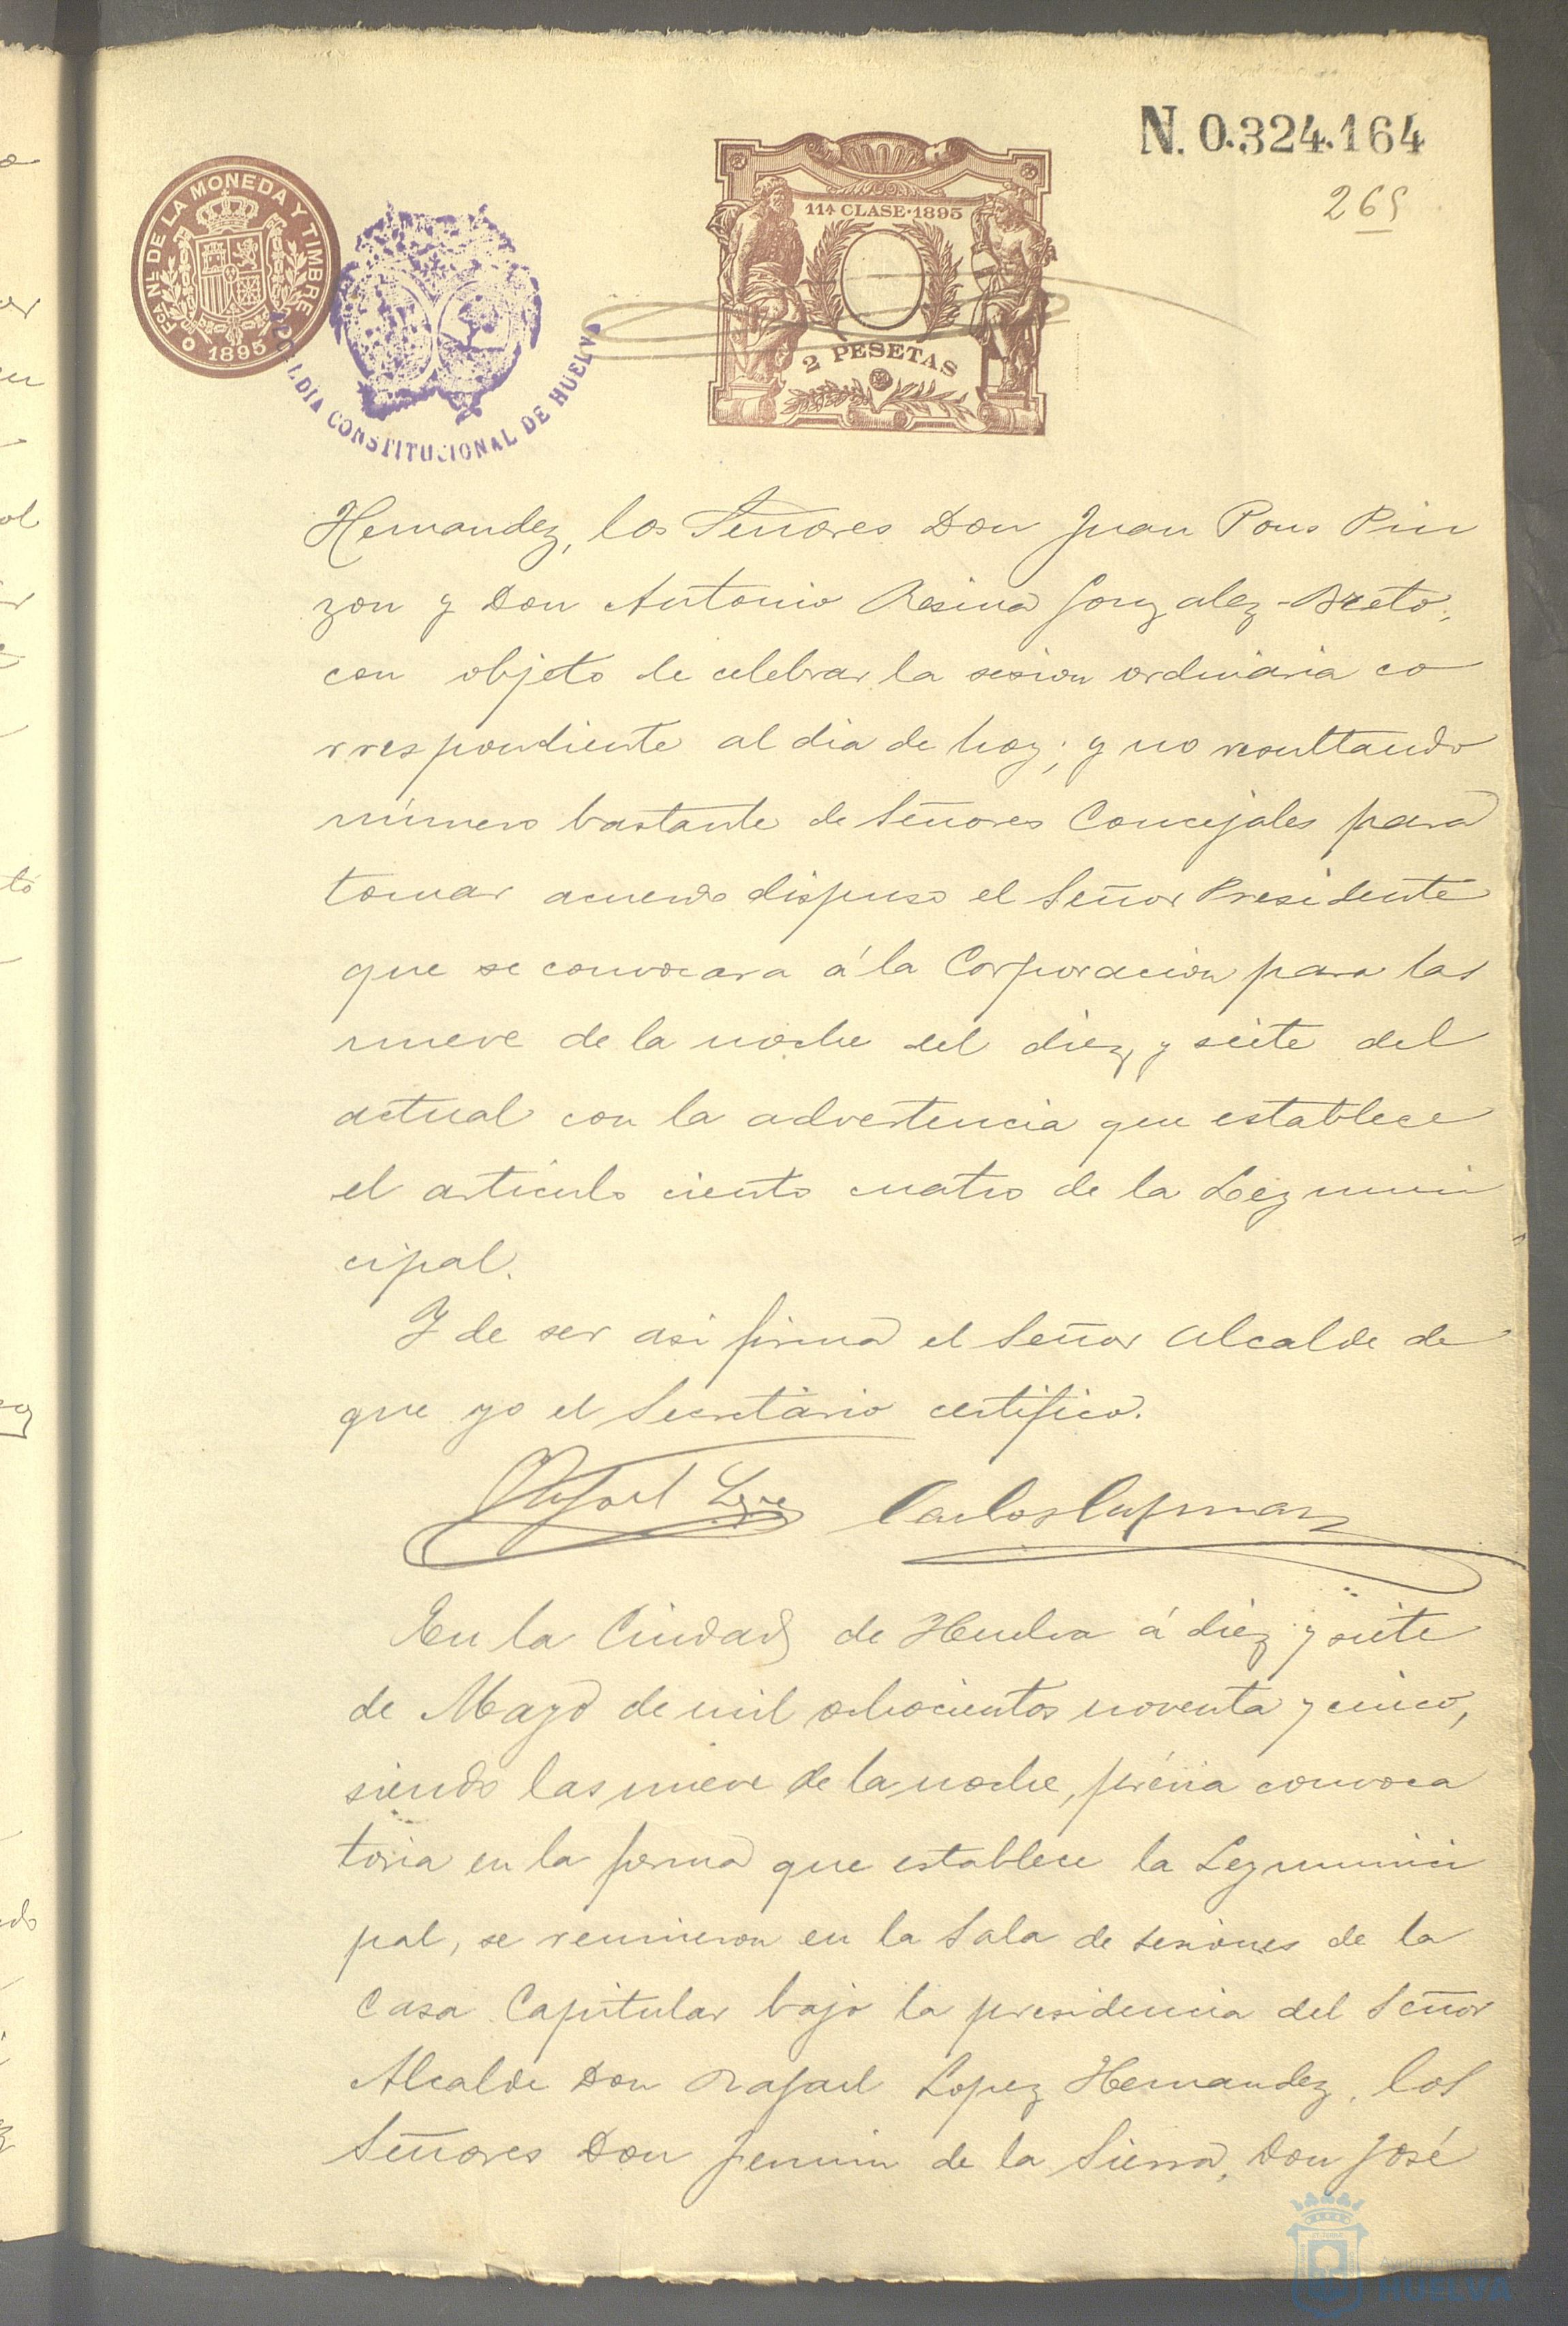 N. 0.324.164
265
FCA. NL. DE LA MONEDA Y TIMBRE
1895
ALCALDIA CONSTITUCIONAL DE HUELVA
11ª CLASE·1895
2 PESETAS
Hernandez, los Señores Don Juan Pons Pin
zon y Don Antonio Resina Gonzalez-Breto,
con objeto de celebrar la sesion ordinaria co
rrespondiente al dia de hoy; y no resultando
número bastante de Señores Concejales para
tomar acuerdo dispuso el Señor Presidente
que se convocara á la Corporacion para las
nueve de la noche del diez y siete del
actual con la advertencia que establece
el artículo ciento cuatro de la Ley muni
cipal.
Y de ser asi firma el Señor Alcalde de
que yo el Secretario certifico.
Rafael Carlos
En la Ciudad de Huelva á diez y siete
de Mayo de mil ochocientos noventa y cinco,
siendo las nueve de la noche, prévia convoca
toria en la forma que establece la Ley munici
pal, se reunieron en la Sala de sesiones de la
Casa Capitular bajo la presidencia del Señor
Alcalde Don Rafael Lopez Hernandez, los
Señores Don Fermin de la Sierra, Don José
HUELVA